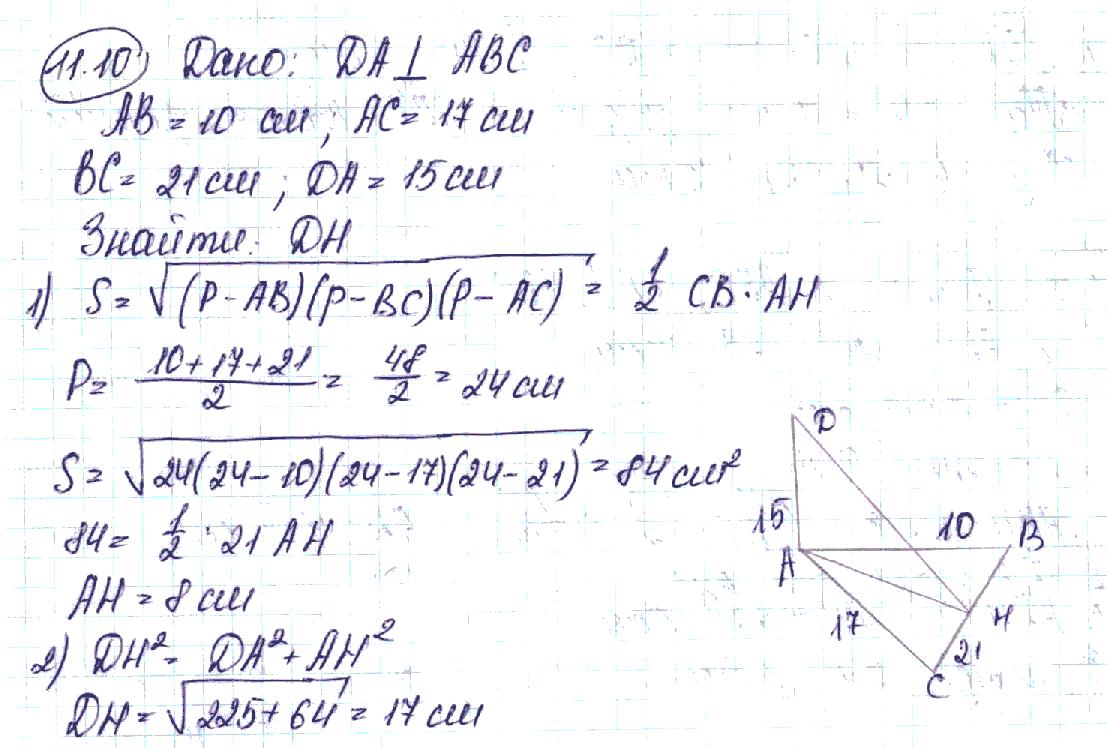 11.10 Дано: DA⊥ ABC
AB = 10 см; AC = 17 см
BC = 21 см; DA = 15 см
Знайти: DH
1) S = √(P - AB)(P - BC)(P - AC) = 1/2 CB · AH
P = (10 + 17 + 21)/2 = 48/2 = 24 см
S = √24(24 - 10)(24 - 17)(24 - 21) = 84 см²
84 = 1/2 · 21 AH
AH = 8 см
2) DH² = DA² + AH²
DH = √225 + 64 = 17 см
D
15
10
B
A
H
17
21
C